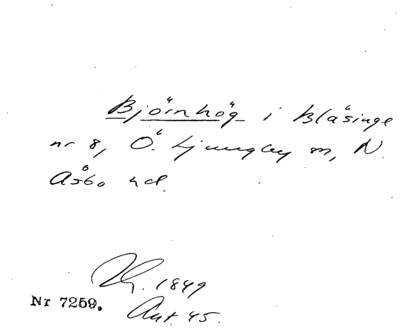 Björnhög i Blåsinge
nr 8, Ö. Ljungby sn, N.
Åsbo hd.
1849
Nr 7259.
Ant. 45.